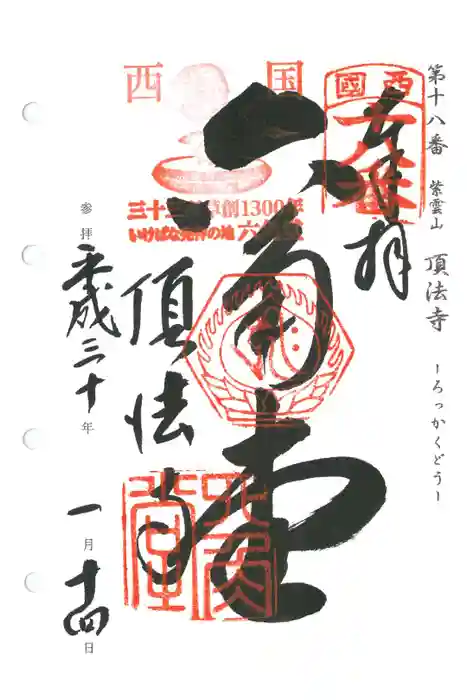 第十八番 紫雲山 頂法寺 ーろっかくどうー
奉拝
西國
十八番
六角堂
西国
草創1300年
いけばな発祥の地 六角堂
頂法寺
六角堂
参拝 平成三十年 一月十四日